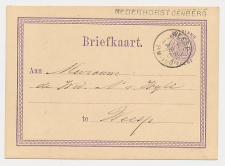 NEDERHORSTDENBERG
Briefkaart.
Aan Mevrouw
de Wed. N. v. Zyll
te Weesp